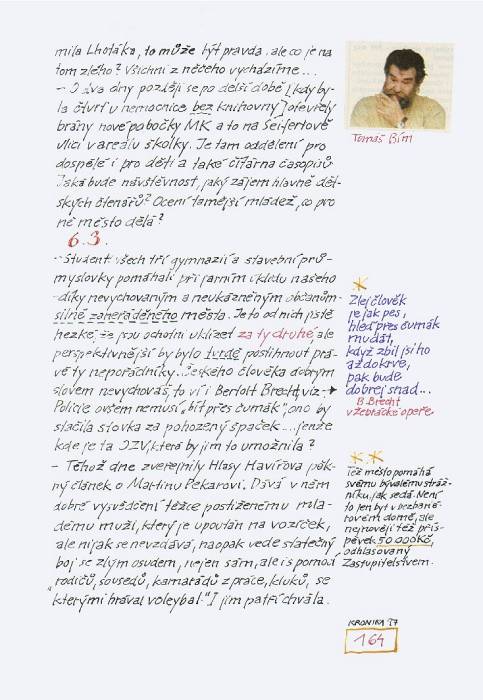 mila Lhotáka, to může být pravda, ale co je na
tom zlého? Všichni z něčeho vycházíme...
- O dva dny později se po delší době (kdy by-
la čtvrť u nemocnice bez knihovny) otevřely
brány nové pobočky MK a to na Seifertově
ulici v areálu školky. Je tam oddělení pro
dospělé i pro děti a také čítárna časopisů.
Jaká bude návštěvnost, jaký zájem hlavně dět-
ských čtenářů? Ocení tamější mládež, co pro
ně město dělá?
6.3.
- Studenti všech tří gymnazií a stavební prů-
myslovky pomáhali při jarním úklidu našeho
díky nevychovaným a neukázněným občanům
silně zaneřáděného města. Je to od nich jistě
hezké, že jsou ochotni uklízet za ty druhé, ale
perspektivnější by bylo tvrdě postihnout prá-
vě ty nepořádníky... Českého člověka dobrým
slovem nevychováš, to ví i Bertolt Brecht, viz →
Policie ovšem nemusí „bít přes čumák", ono by
stačila stovka za pohozený špaček.... Jenže
kde je ta OZV, která by jim to umožnila?
- Téhož dne zveřejnily Hlasy Havířova pěk-
ný článek o Martinu Pekarovi. Dává v něm
dobré vysvědčení těžce postiženému mla-
dému muži, který je upoután na vozíček,
ale nijak se nevzdává, naopak vede statečný
boj se zlým osudem, nejen sám, ale i s pomocí
„rodičů, sousedů, kamarádů z práce, kluků, se
kterými hrával voleybal." I jim patří chvála.
Tomáš Bím
Zlej člověk
je jak pes,
hleď přes čumák
mu dát,
když zbil jsi ho
až do krve,
pak bude
dobrej snad...
B. Brecht
v Žebrácké opeře
Též město pomáhá
svému bývalému stráž-
níku, jak se dá. Není
to jen byt v bezbarié-
rovém domě, ale
nejnověji též přís-
pěvek 50 000 Kč,
odhlasovaný
Zastupitelstvem.
KRONIKA 97
164